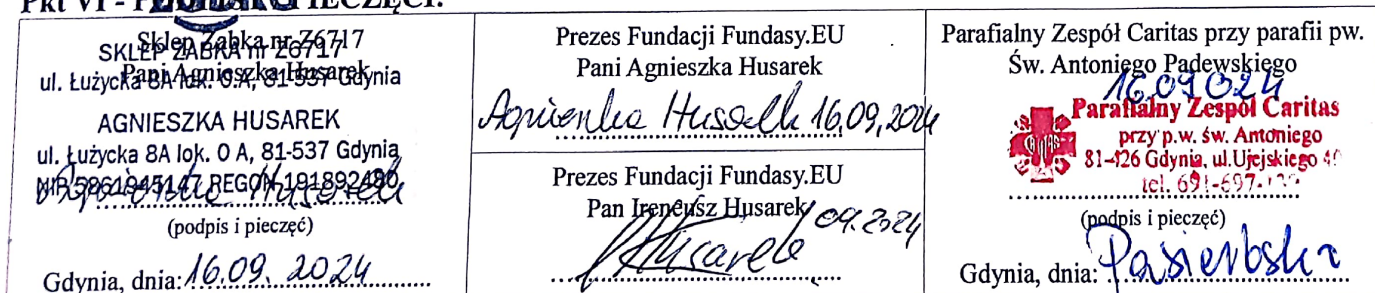 Pkt VI - PODPISY I PIECZĘCI:
Sklep Żabka nr Z6717
Pani Agnieszka Husarek
SKLEP ŻABKA nr Z6717
ul. Łużycka 8A lok. 0.A, 81-537 Gdynia
AGNIESZKA HUSAREK
ul. Łużycka 8A lok. 0 A, 81-537 Gdynia
NIP 5861945147 REGON 191892480
Agnieszka Husarek
(podpis i pieczęć)
Gdynia, dnia: 16.09. 2024
Prezes Fundacji Fundasy.EU
Pani Agnieszka Husarek
Agnieszka Husarek 16.09.2024
Prezes Fundacji Fundasy.EU
Pan Ireneusz Husarek
09.2024
Husarek
Parafialny Zespół Caritas przy parafii pw.
Św. Antoniego Padewskiego
16.09.024
Parafialny Zespół Caritas
przy p.w. św. Antoniego
81-426 Gdynia, ul. Ujejskiego 40
tel. 691-697-
(podpis i pieczęć)
Gdynia, dnia: Pasierbska